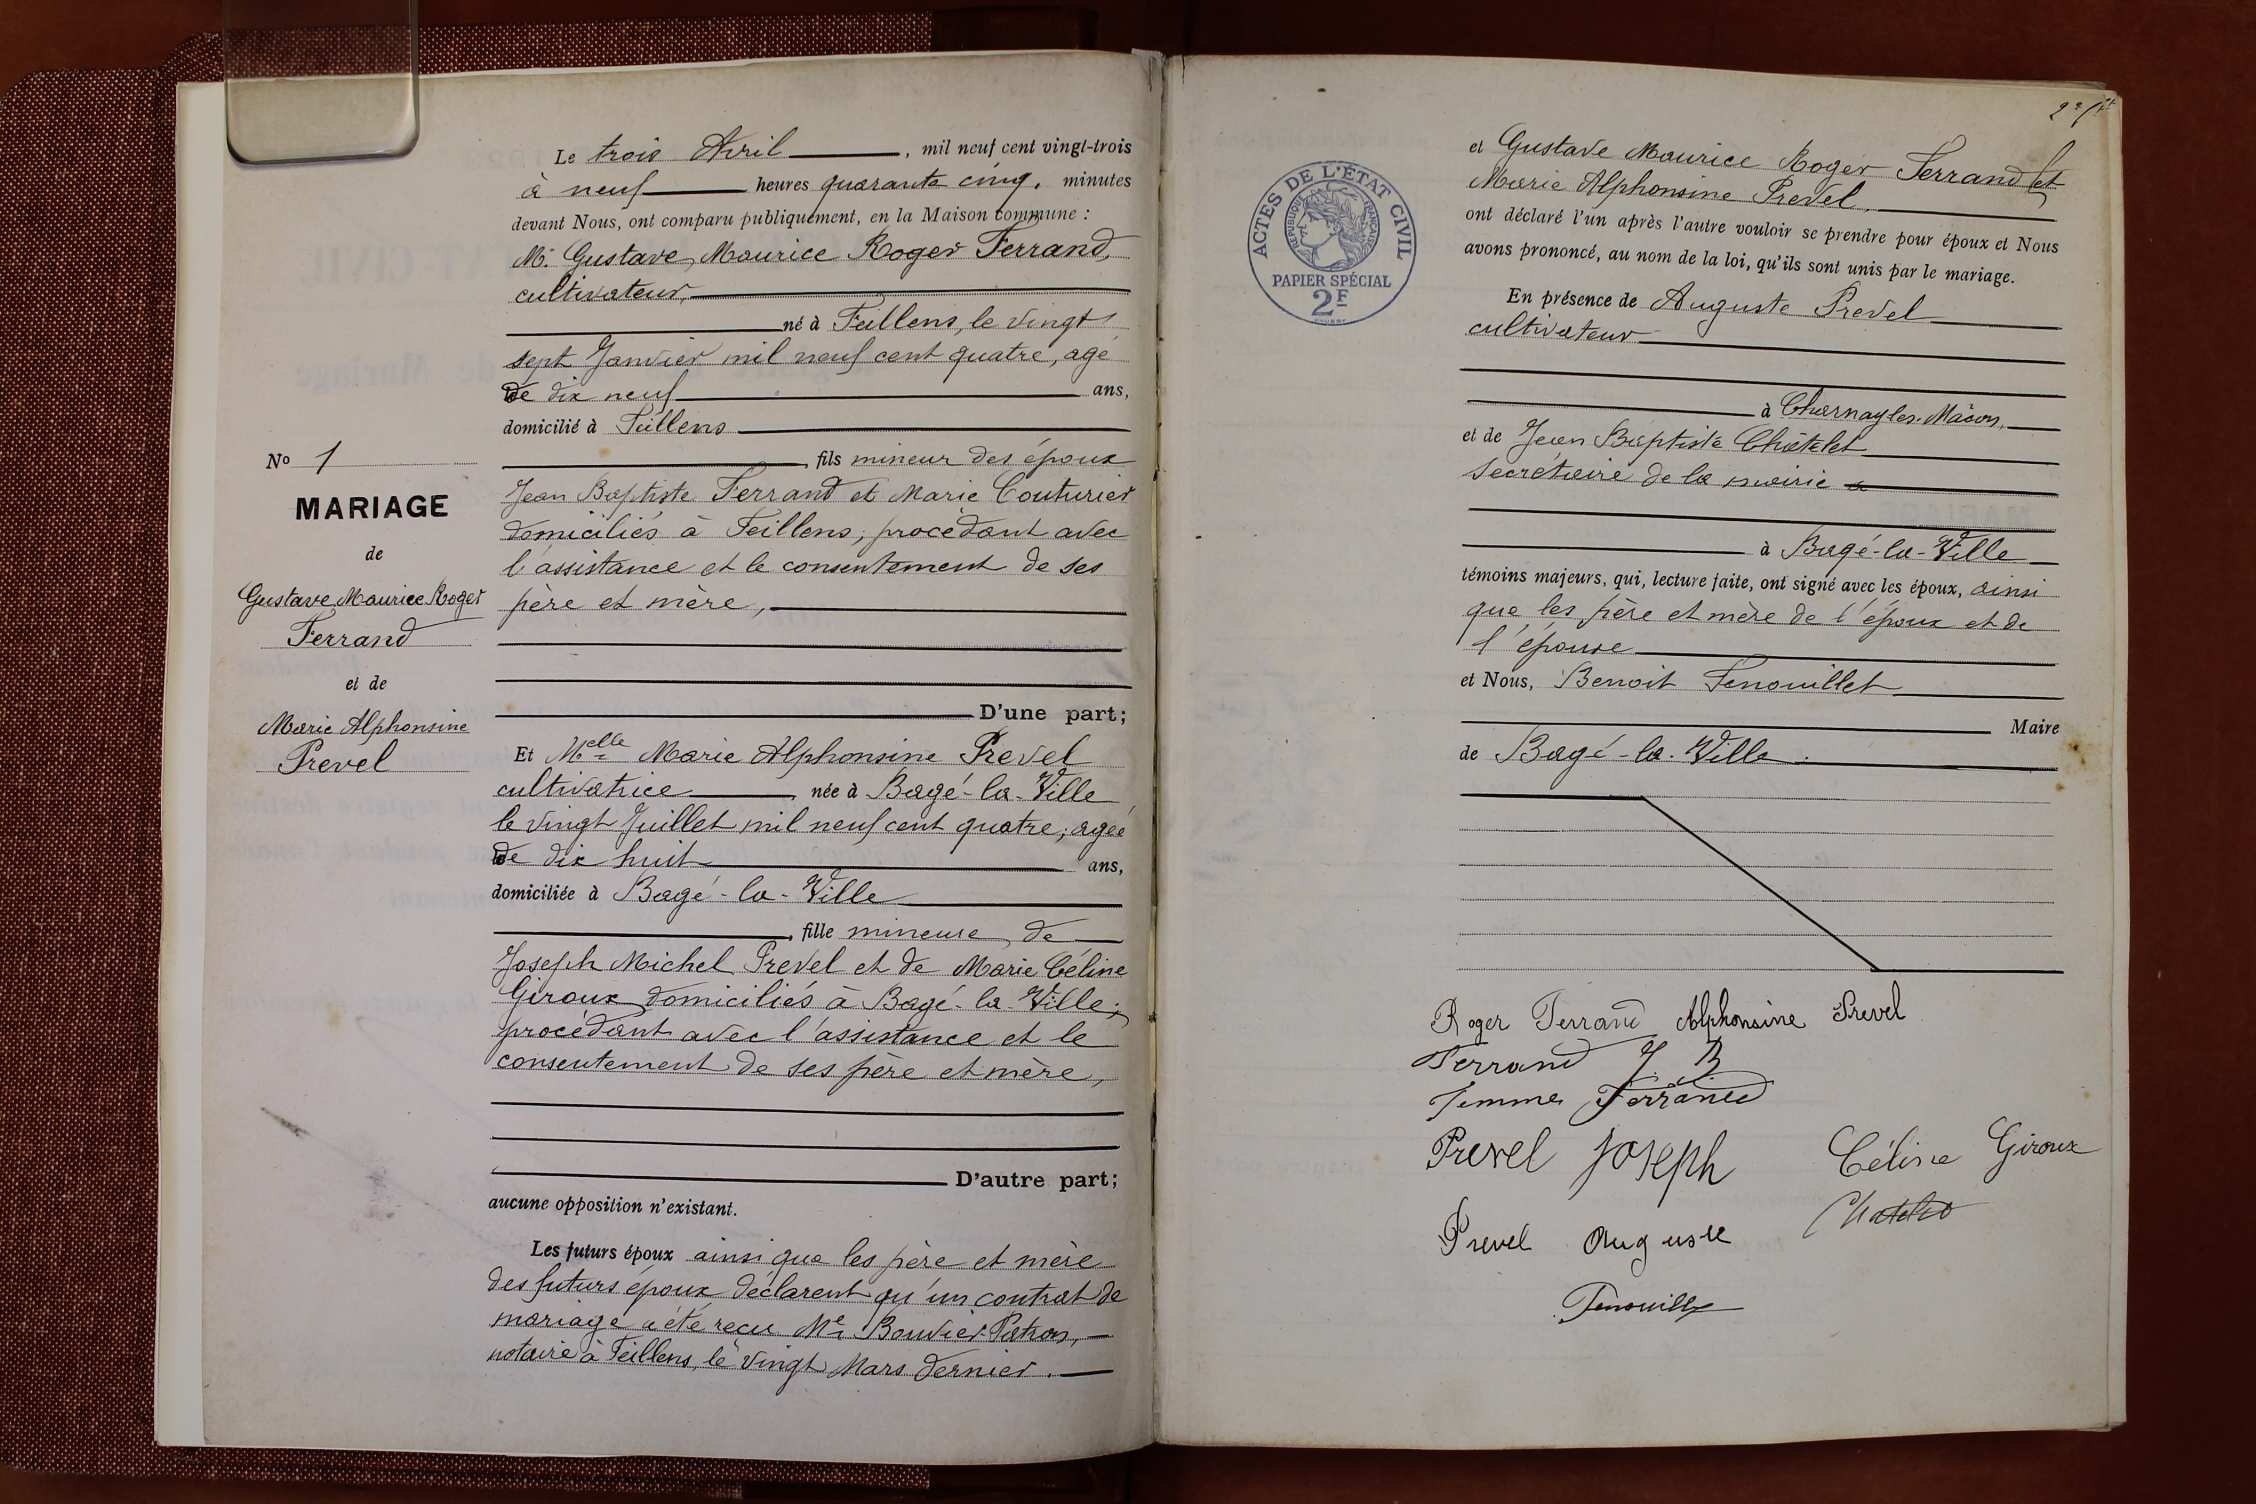 Le trois Avril, mil neuf cent vingt-trois
à neuf heures quarante cinq. minutes
devant Nous, ont comparu publiquement, en la Maison commune :
Mr. Gustave Maurice Roger Ferrand,
cultivateur,
né à Feillens, le vingt
sept Janvier mil neuf cent quatre, agé
de dix neuf ans,
domicilié à Feillens
, fils mineur des époux
Jean Baptiste Ferrand et Marie Couturier
domiciliés à Feillens, procédant avec
l'assistance et le consentement de ses
père et mère,
D'une part;
No 1
MARIAGE
de
Gustave Maurice Roger
Ferrand
et de
Marie Alphonsine
Prevel
Et Melle Marie Alphonsine Prevel
cultivatrice née à Bagé-la-Ville
le vingt Juillet mil neuf cent quatre, agée
de dix huit ans,
domiciliée à Bagé-la-Ville
, fille mineure de
Joseph Michel Prevel et de Marie Céline
Giroux domiciliés à Bagé-la Ville;
procédant avec l'assistance et le
consentement de ses père et mère,
D'autre part;
aucune opposition n'existant.
Les futurs époux ainsi que les père et mère
des futurs époux déclarent qu'un contrat de
mariage a été recu Me Bouvier-Patron,
notaire à Feillens, le vingt Mars dernier.
ACTES DE L'ÉTAT CIVIL
RÉPUBLIQUE FRANÇAISE
PAPIER SPÉCIAL
2F
et Gustave Maurice Roger Ferrand et
Marie Alphonsine Prevel,
ont déclaré l'un après l'autre vouloir se prendre pour époux et Nous
avons prononcé, au nom de la loi, qu'ils sont unis par le mariage.
En présence de Auguste Prevel
cultivateur
à Charnay les Mâcon,
et de Jean Baptiste Châtelet
secrétaire de la mairie
à Bagé-la-Ville
témoins majeurs, qui, lecture faite, ont signé avec les époux, ainsi
que les père et mère de l'époux et de
l'épouse
et Nous, Benoit Fenouillet
Maire
de Bagé-la-Ville.
Roger Ferrand Alphonsine Prevel
Ferrand J. B
Femme Ferrand
Prevel Joseph Céline Giroux
Chatelet
Prevel Auguste
Fenouillet